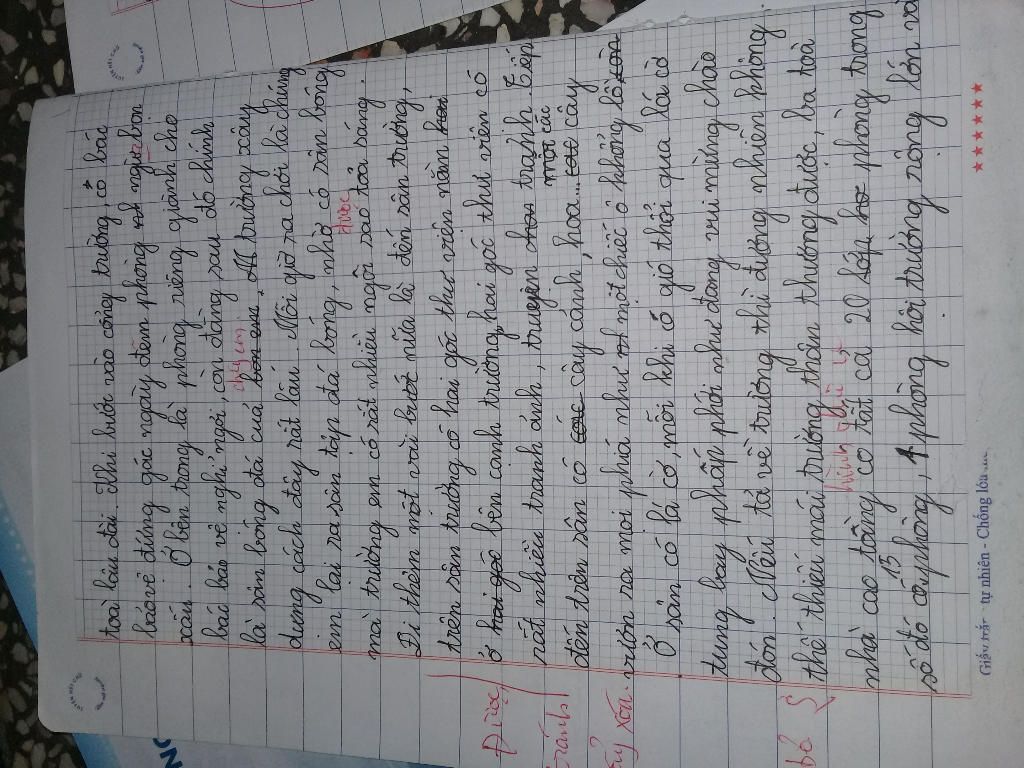 toà lâu đài. Khi bước vào cổng trường, có bác
bảo vệ đứng gác ngày đêm phòng ngừa bọn
xấu. Ở bên trong là phòng riêng giành cho
bác bảo vệ nghỉ ngơi, còn đằng sau đó chính
là sân bóng đá của chúng em. trường xây
dựng cách đây rất lâu. Mỗi giờ ra chơi là chúng
em lại ra sân tập đá bóng, nhờ có sân bóng
mà trường em có rất nhiều ngôi sao được toả sáng.
Đi thêm một vài bước nữa là đến sân trường,
trên sân trường có hai góc thư viên nằm
ở bên cạnh trường, hai góc thư viên có
rất nhiều tranh ảnh, truyện tranh. Tiếp
đến trên sân có cây cảnh, hoa... một cái cây
vươn ra mọi phía như một chiếc ô khổng lồ
Ở sân có lá cờ, mỗi khi có gió thổi qua lá cờ
tung bay phấp phới như đang vui mừng chào
đón. Nếu tả về trường thì đương nhiên không
thể thiếu mái trường thân thương được, ba toà
nhà cao tầng có tất cả 20 phòng trong
số đó có 15 phòng, 1 phòng hội trường rộng lớn và
Được
tránh
hùng thủ vỹ
bỏ
Giấy trắng tự nhiên - Chống lóa